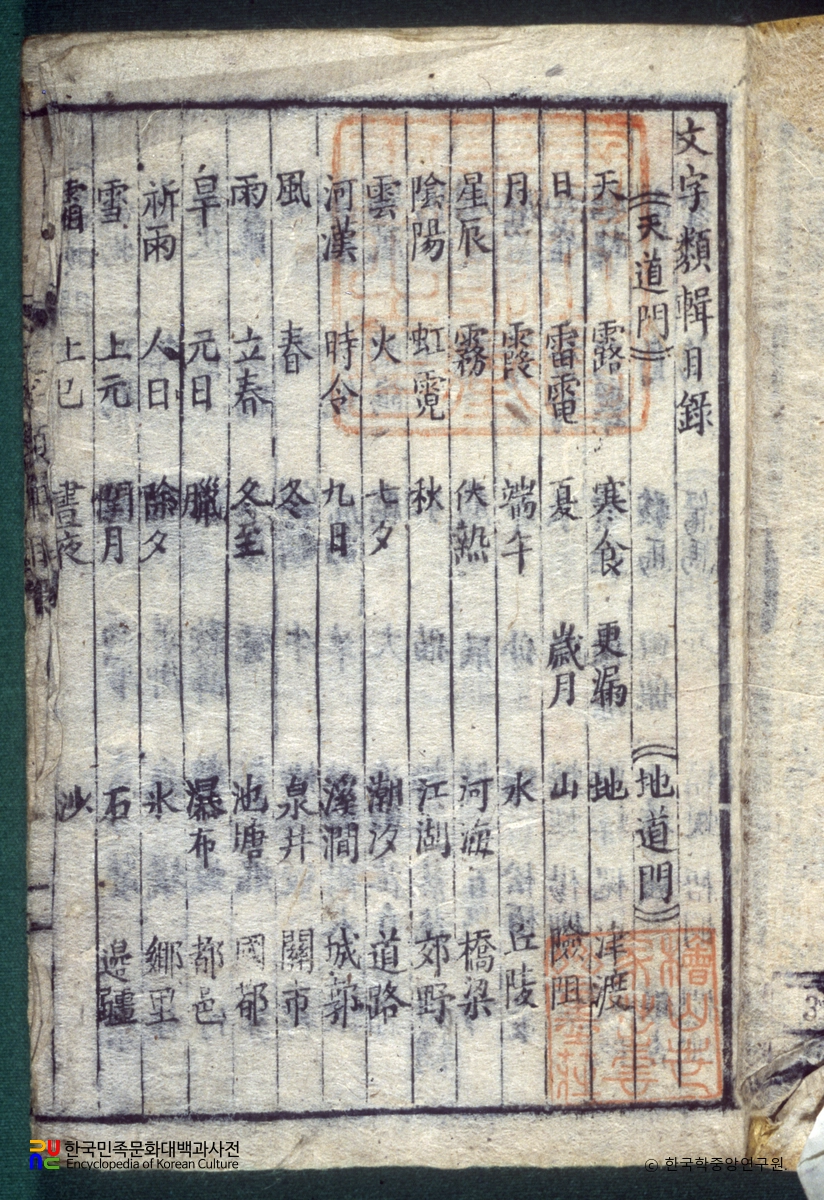 文字類輯目錄
天道門 地道門
天 露 寒食 更漏 地 津渡
日 雷電 夏 歲月 山 險阻
月 霞 端午 水 丘陵
星辰 霧 伏熱 河海 橋梁
陰陽 虹霓 秋 江湖 郊野
雲 火 七夕 潮汐 道路
河漢 時令 九日 溪澗 城郭
風 春 冬 泉井 關市
雨 立春 冬至 池塘 國都
旱 元日 臘 瀑布 都邑
祈雨 人日 除夕 氷 鄕里
雪 上元 閏月 石 邊疆
霜 上巳 晝夜 沙
3
한국민족문화대백과사전
Encyclopedia of Korean Culture
© 한국학중앙연구원